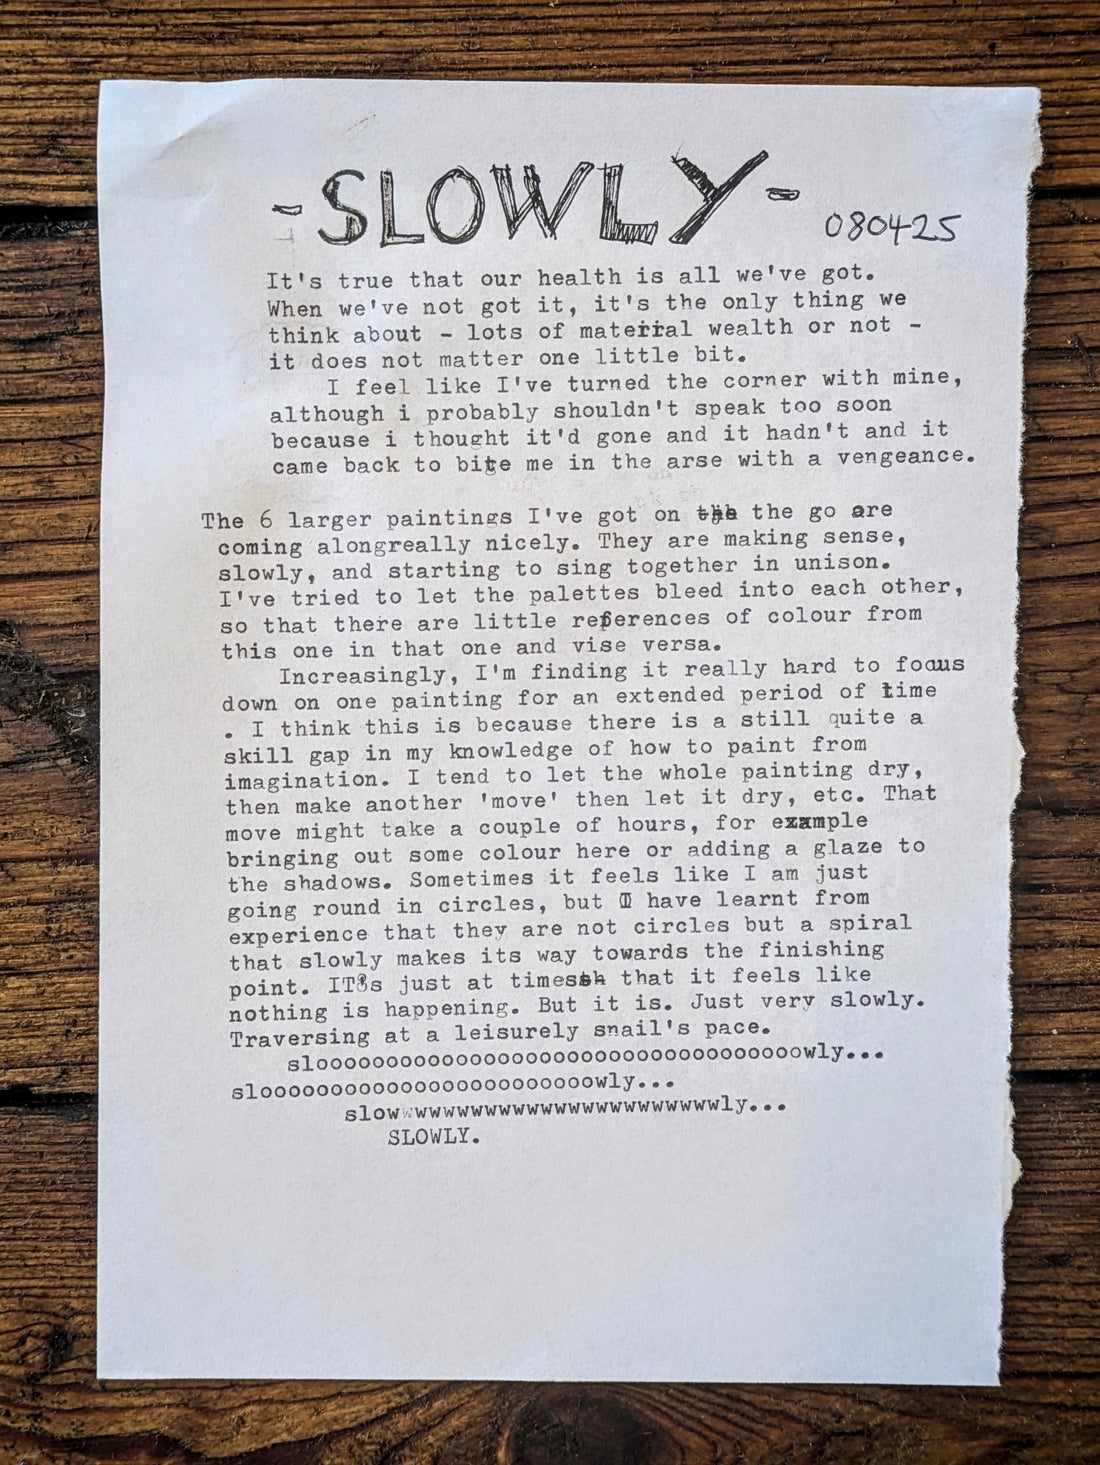 -SLOWLY-
080425
It's true that our health is all we've got.
When we've not got it, it's the only thing we
think about - lots of material wealth or not -
it does not matter one little bit.
I feel like I've turned the corner with mine,
although i probably shouldn't speak too soon
because i thought it'd gone and it hadn't and it
came back to bite me in the arse with a vengeance.
The 6 larger paintings I've got on the go are
coming alongreally nicely. They are making sense,
slowly, and starting to sing together in unison.
I've tried to let the palettes bleed into each other,
so that there are little references of colour from
this one in that one and vise versa.
Increasingly, I'm finding it really hard to focus
down on one painting for an extended period of time
. I think this is because there is a still quite a
skill gap in my knowledge of how to paint from
imagination. I tend to let the whole painting dry,
then make another 'move' then let it dry, etc. That
move might take a couple of hours, for example
bringing out some colour here or adding a glaze to
the shadows. Sometimes it feels like I am just
going round in circles, but I have learnt from
experience that they are not circles but a spiral
that slowly makes its way towards the finishing
point. IT's just at times that it feels like
nothing is happening. But it is. Just very slowly.
Traversing at a leisurely snail's pace.
slooooooooooooooooooooooooooooooooooowly...
sloooooooooooooooooooooooowly...
slowwwwwwwwwwwwwwwwwwwwwwwwly...
SLOWLY.